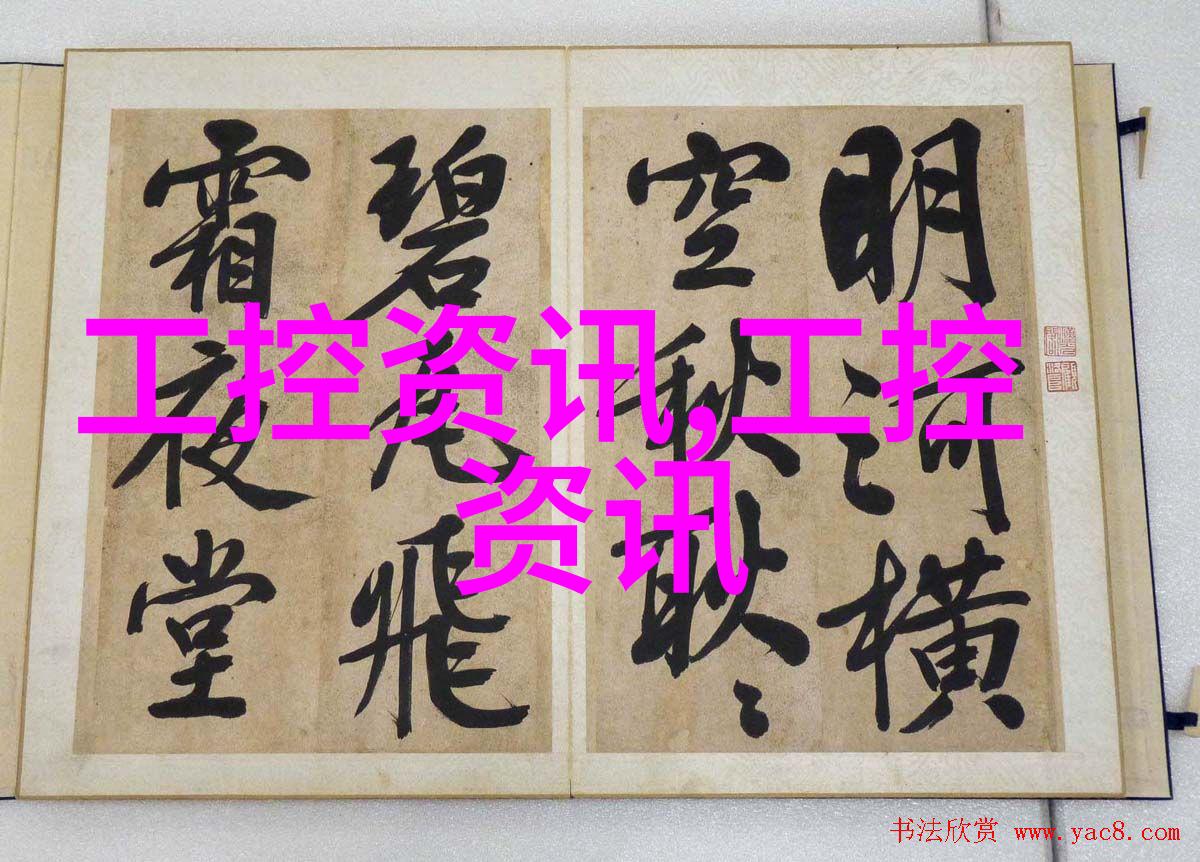 明河横
空秋耿〻
碧瓦飛
霜夜堂
工控资讯,工控
资讯
书法欣赏 www.yac8.com